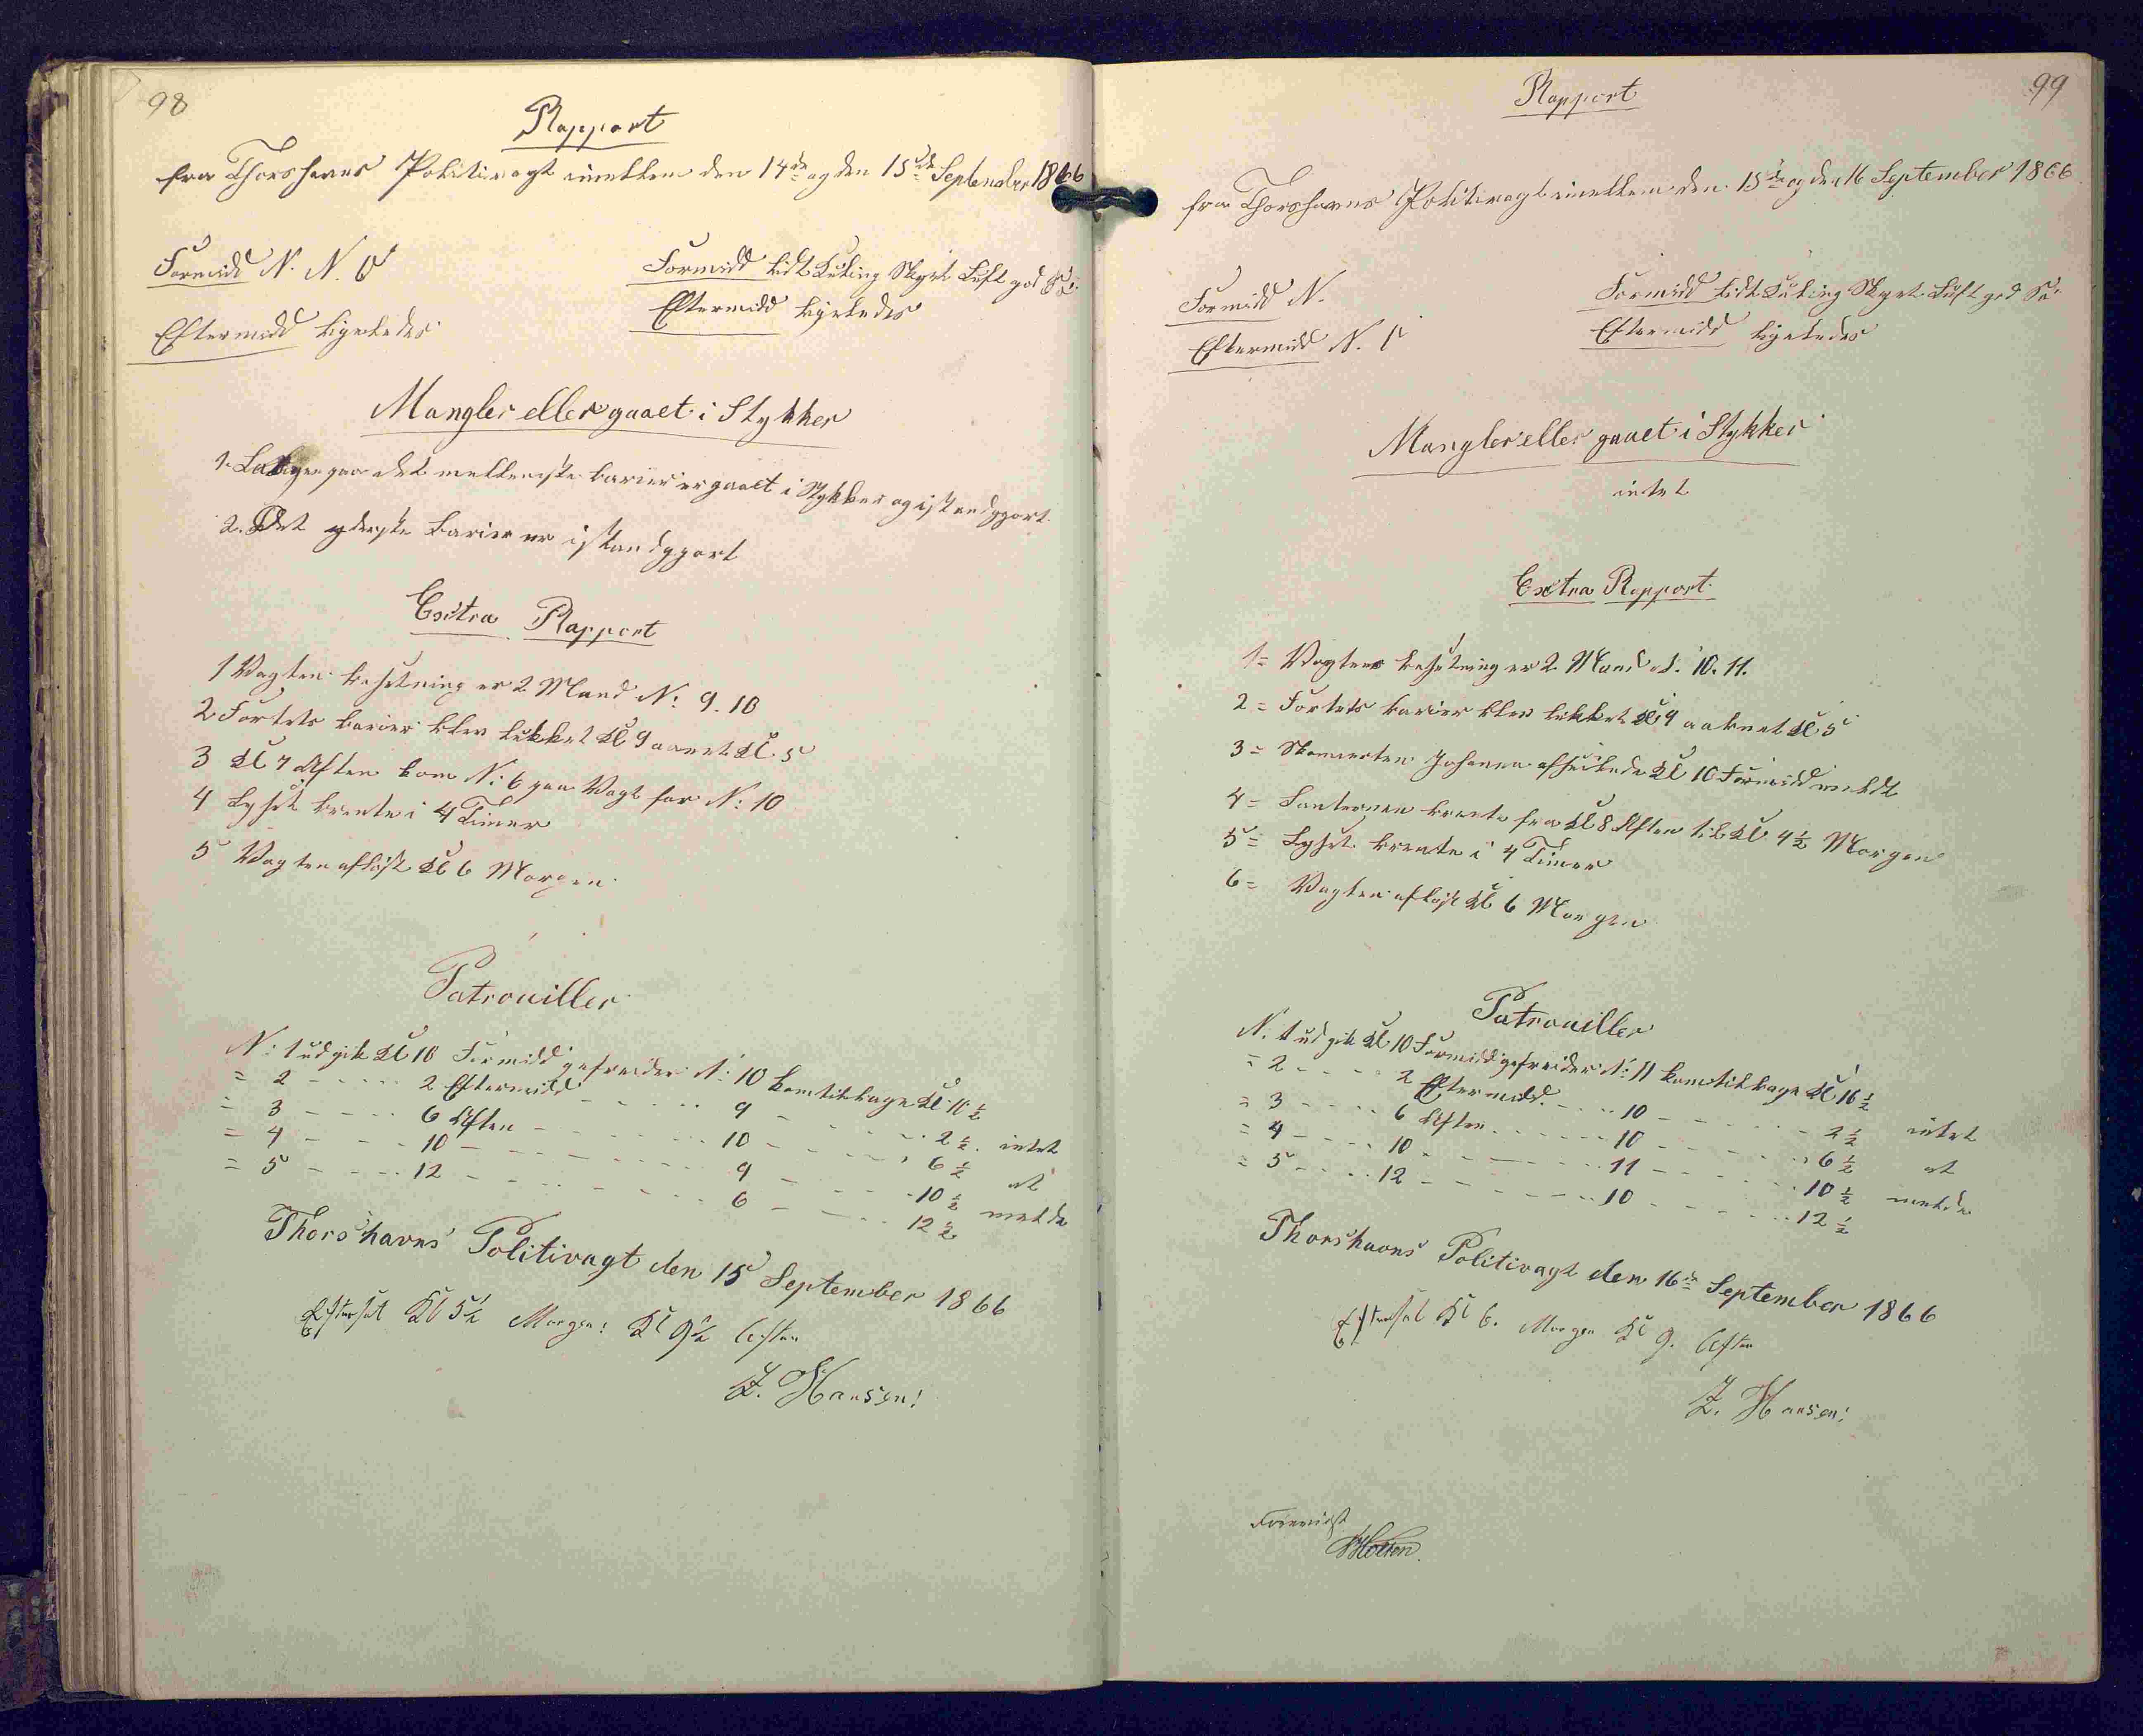 98
Rapport
fra Thorshavns Politivagt imellem den 14de og den 15de September 1866
Formidd N. N. O
Formidd lidt Kuling Skyet Luft god Sö
Eftermidd ligeledes
Eftermidd ligeledes
Mangler eller gaaet i Stykker
1. paa det mellemste barier er gaaet i Stykker og istandgjort
2. Det yderste barier er istandgjort
Extra Rapport
1 Vagten besetning er 2 Mand N: 9. 10
2 Fortets barier blev lukket Kl 9 aanet Kl. 5
3 Kl 7 Aften kom N: 6 paa Vagt for N: 10
4 Lyset brente i 4 Timer
5 Vagten aflöst Kl 6 Morgen
Patrouiller
N: 1 udgik Kl 10 Formidd gefreider N: 10 kom tilbage Kl. 10 ½
= 2 - - - - 2 Eftermidd - - - - 9 - - - - 2 ½ intet
= 3 - - - - 6 Aften - - - - 10 - - - - 6 ½ at
= 4 - - - - 10 - - - - 9 - - - - 10 ½ melde
= 5 - - - - 12 - - - - 6 - - - - 12 ½
Thorshavns Politivagt den 15 September 1866
Efterset Kl 5½ Morgen: Kl 9½ Aften
Z. Hansen!
99
Rapport
fra Thorshavns Politivagt imellem den 15de og den 16 September 1866
Formidd N.
Formidd lidt Kuling Skyet Luft god Sö
Eftermidd N.
Eftermidd ligeledes
Mangler eller gaaet i Stykker
intet
Extra Rapport
1= Vagtens besetning er 2 Mand N. 10. 11.
2= Fortets barier blev lukket Kl 9 aabnet Kl. 5
3= Skonnerten Johanna afseilede Kl 10 Formidd
4= Lanternen brente fra Kl 8 Aften til Kl. 4½ Morgen
5= Lyset brente i 4 Timer
6= Vagten aflöst Kl 6 Morgen
Patrouiller
N. 1 udgik Kl. 10 Formidd gefreider N: 11 kom tilbage Kl 10 ½
= 2 - - - - 2 Eftermidd - - - - 10 - - - - 2 ½ intet
= 3 - - - - 6 Aften - - - - 10 - - - - 6 ½ at
= 4 - - - - 10 - - - - 11 - - - - 10 ½ melde
= 5 - - - - 12 - - - - 10 - - - - 12 ½
Thorshavns Politivagt den 16de September 1866
Efterset Kl 6. Morgen Kl 9. Aften
Z. Hansen!
Foreviist